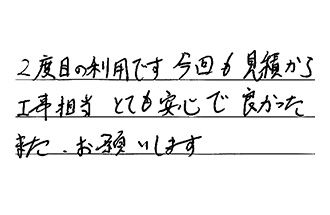 2度目の利用です 今回も見積から
工事担当 とても安心で良かった
また、お願いします